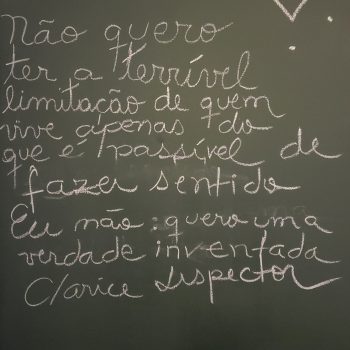 Não quero
ter a terrível
limitação de quem
vive apenas do
que é passível de
fazer sentido
Eu não: quero uma
verdade inventada
Clarice Lispector